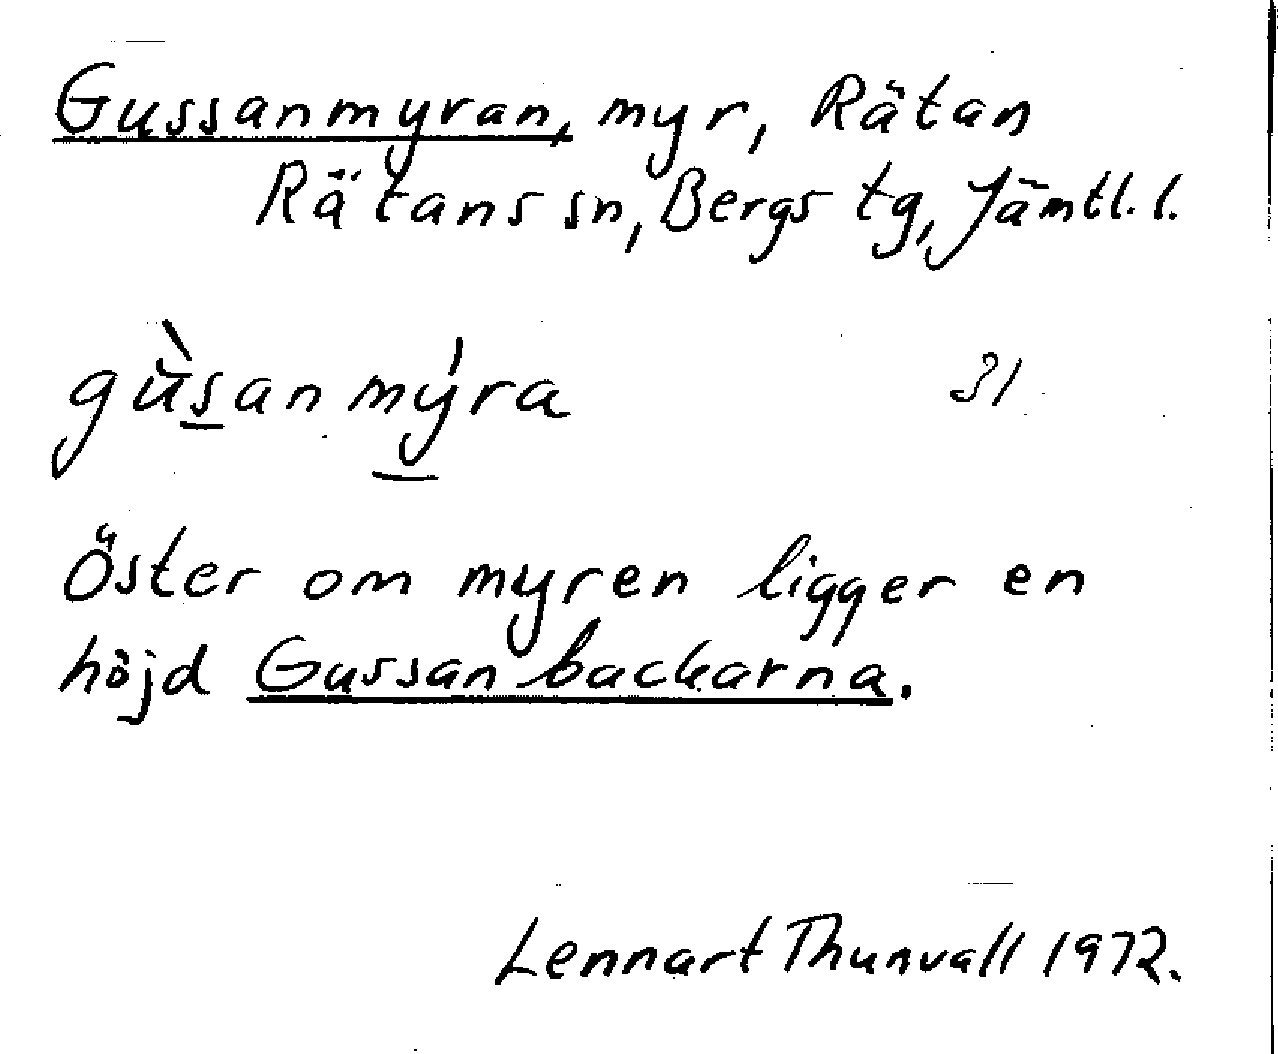 Gussanmyran, myr, Rätan
Rätans sn, Bergs tg, Jämtl. l.
gùsanmýra 31
Öster om myren ligger en
höjd Gussanbackarna.
Lennart Thunvall 1972.